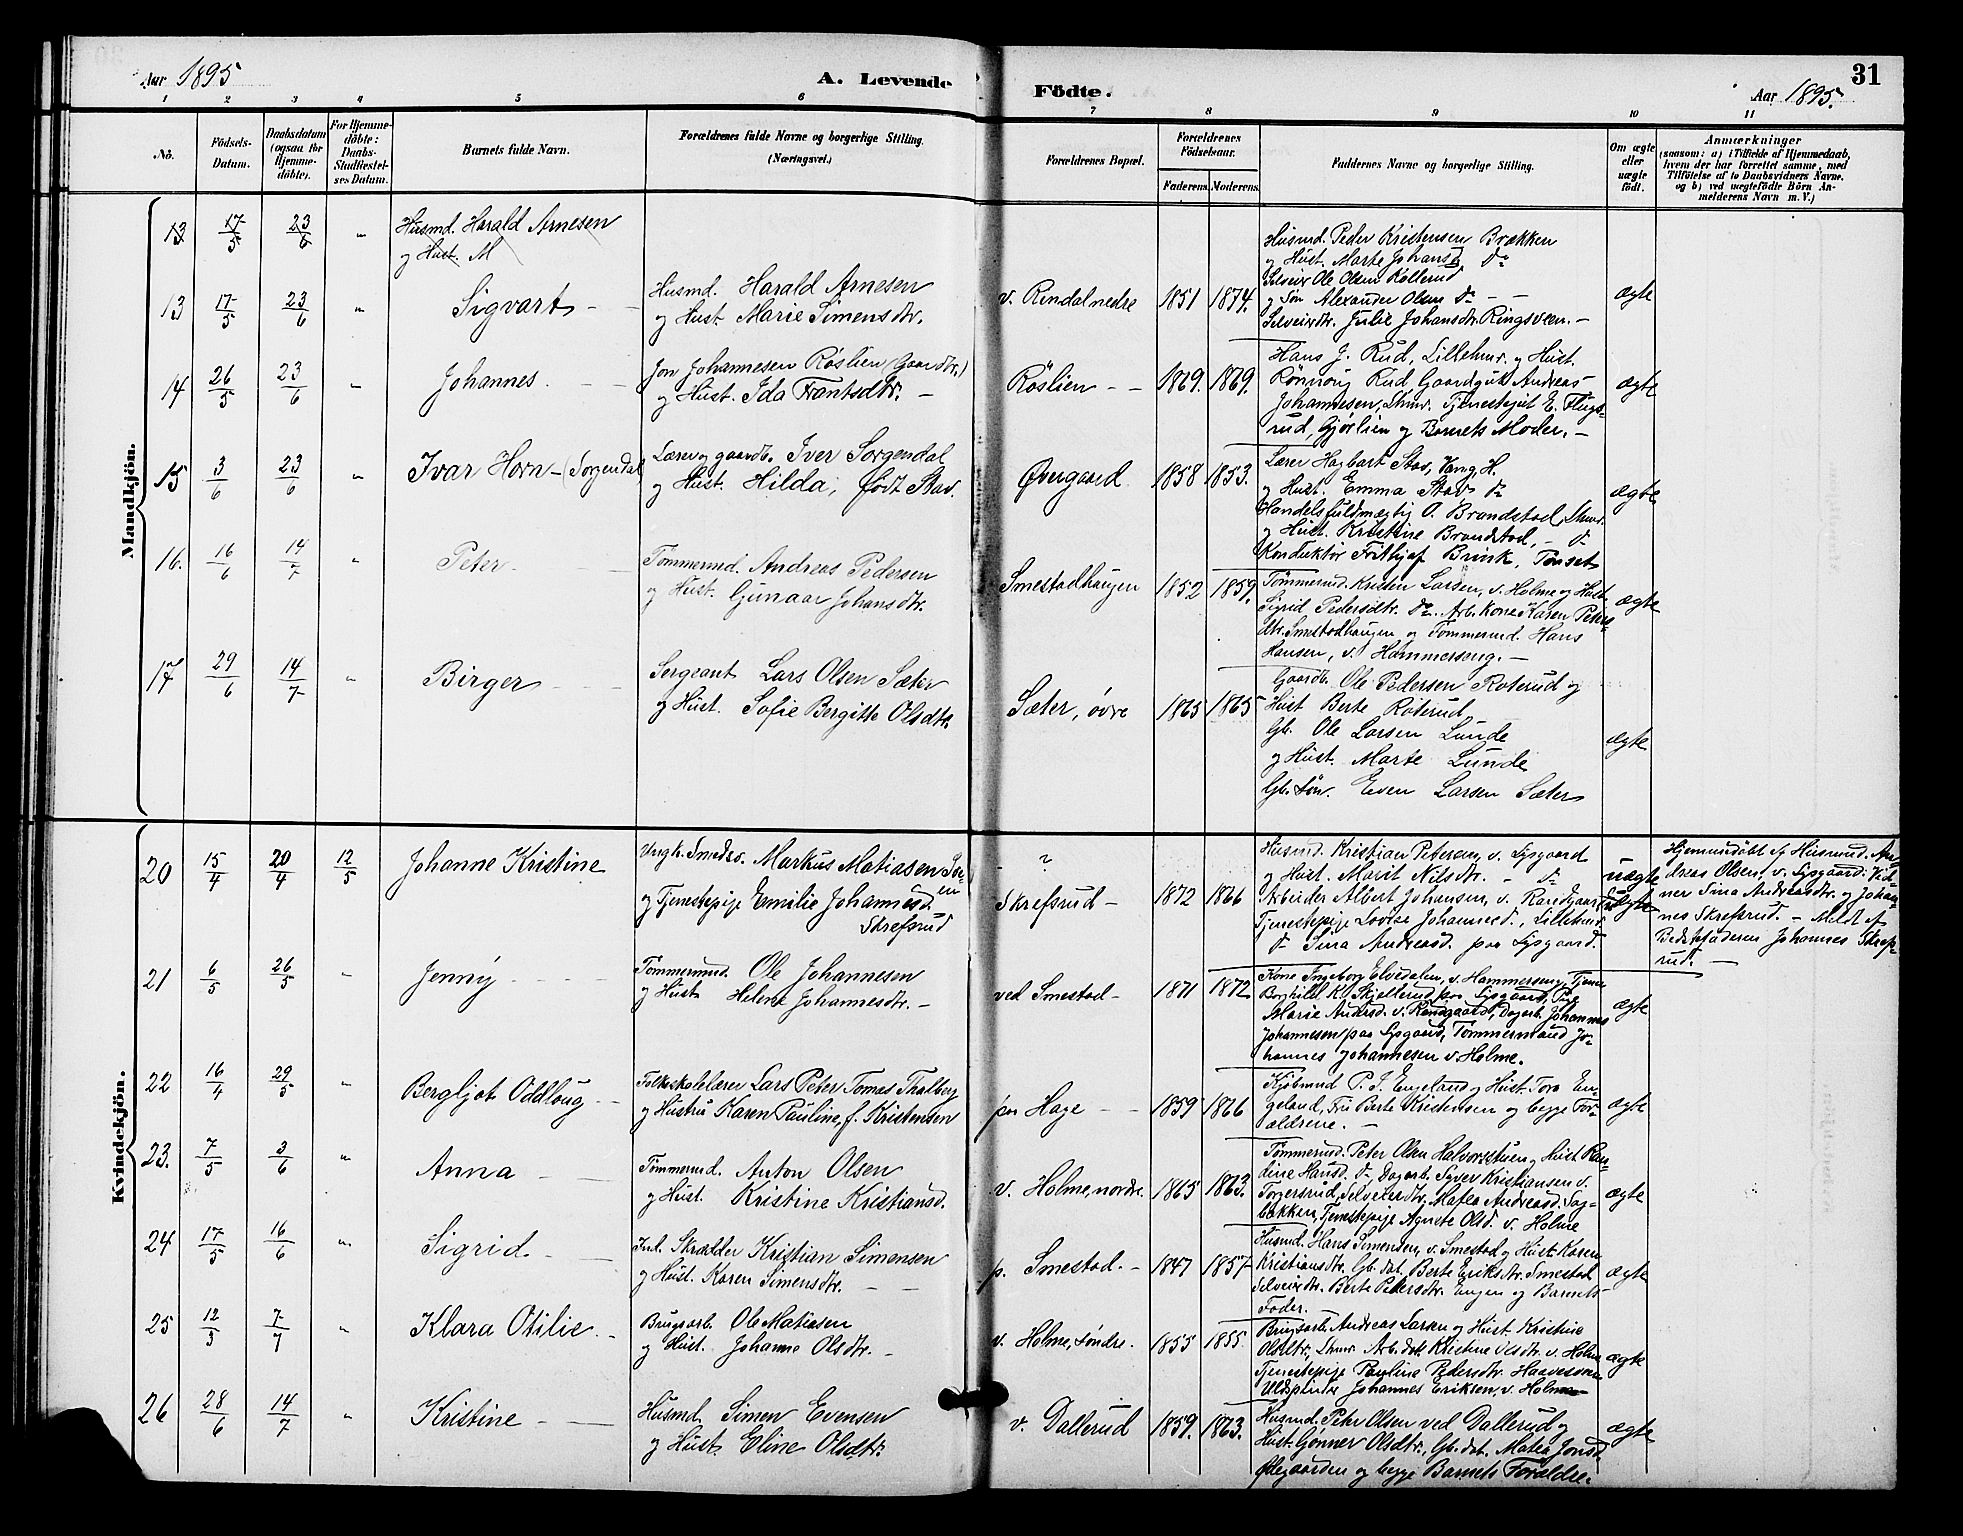 Aar 1895
A. Levende
Födte.
31
Aar 1895.
1 2 3 4 5 6 7 8 9 10 11
No.
Födsels-
Datum.
Daabsdatum
(ogsaa for
Hjemme-
döbte).
For Hjemme-
döbte:
Daabs-
Stadfæstel-
ses Datum.
Barnets fulde Navn.
Forældrenes fulde Navne og borgerlige Stilling.
(Næringsvei.)
Forældrenes Bopæl.
Forældrenes
Födselsaar.
Faderens. Moderens.
Faddernes Navne og borgerlige Stilling.
Om ægte
eller
uægte
født.
Anmærkninger
(saasom: a) i Tilfælde af Hjemmedaab,
hvem der har forrettet samme, med
Tilföielse af to Daabsvidners Navne,
og b) ved uægtefödte Börn An-
melderens Navn m. V.)
Mandkjön.
13 17/5 23/6 " Husmd. Harald Arnesen
og Hust. M
13 17/5 23/6 " Sigvart
Husmd. Harald Arnesen
og Hust. Marie Simensdtr.
v. Rindal nedre 1851 1874.
Husmd. Peder Kristensen Brækken
og Hust. Marte Johansd. do
Selveier Ole Olsen Kollerud
og Søn Alexander Olsen do
Selveierdtr. Julie Johansdtr. Ringsveen.
ægte
14 26/5 23/6 " Johannes
Jon Johannesen Röslien (Gaardbr.)
og Hust. Ida Frantsdtr.
Röslien 1869. 1869.
Hans J. Rud, Lillehmr. og Hust.
Rönnoug Rud, Gaardgut Andreas
Johannesen, Lhmr. Tjenestepige E. Flugs-
rud, Gjörlien og Barnets Moder.
ægte
15 3/6 23/6 " Ivar Horn (Sorgendal)
Lærer og gaardb. Iver Sorgendal
og Hust. Hilda, født Stav.
Øvergaard 1858 1853.
Lærer Hagbart Stav, Vang, H.
og Hust. Emma Stav do
Handelsfuldmægtig O. Brandstad, Lhmr.
og Hust. Kristine Brandstad, do
Konduktör Frithjof Brink, Tønset
ægte
16. 16/6 14/7 " Peter
Tömmermd. Andreas Pedersen
og Hust. Gunaar Johansdtr.
Smestadhaugen 1852 1859.
Tömmermd. Kristen Larsen, v. Holme og Hust.
Sigrid Pedersdtr. do. Arb. Kone Karen Peters-
dtr. Smestadhaugen og Tömmermd. Hans
Hansen, v. Hammerseng.
ægte
17 29/6 14/7 " Birger
Sergeant Lars Olsen Sæter
og Hust. Sofie Bergitte Olsdtr.
Sæter, övre 1865 1865
Gaardb. Ole Pedersen Roterud og
Hust Berte Roterud
Gb. Ole Larsen Lunde
og Hust. Marte Lunde
Gb. sön. Even Larsen Sæter
ægte
Kvindekjön.
20 15/4 20/4 12/5 Johanne Kristine
Ungk. Smedsv. Markus Matiasen
og Tjenestepige Emilie Johannesd.
Skrefsrud
?
Skrefsrud 1872 1866
Husmd. Kristian Petersen, v. Lysgaard
og Hust. Marit Nilsdtr. do
Arbeider Albert Johansen, v. Randgaard
Tjenestepige Lovise Johannesd., Lillehmr.
do Sina Andreasd. paa Lysgaard.
uægte
Hjemmedöbt af Husmd. An-
dreas Olsen, v. Lysgaard. Vid-
ner Sina Andreasdtr. og Johan-
nes Skrefsrud. Meldt af
Bedstefaderen Johannes Skrefs-
rud.
21 6/5 26/5 " Jenny
Tömmermd. Ole Johannesen
og Hust Helene Johannesdtr.
ved Smestad 1871 1872
Kone Ingeborg Elvedalen, v. Hammerseng, Tjener
Borghild K. Skjellerud paa Lysgaard, Pige
Marie Andersd. v. Randgaard, Dagarb. Johannes
Johannesen paa Lysgaard, Tömmermand Jo-
hannes Johannesen v. Holme.
ægte
22 16/4 29/5 " Bergljot Oddloug
Folkeskolelærer Lars Peter Tomas Thalberg
og Hustru Karen Pauline, f. Kristensen
paa Hage 1859 1866
Kjöbmd P. J. Engeland og Hust. Tora En-
geland, Fru Berte Kristensen og begge For-
ældrene.
ægte
23. 7/5 3/6 " Anna
Tömmermd. Anton Olsen
og Hust. Kristine Kristiansd.
v. Holme, nordre. 1865 1863.
Tömmermd. Peter Olsen Halvorstuen og Hust Ran-
dine Hansd. do. Dagarb. Syver Kristiansen v.
Torgersrud, Selveierdtr. Matea Andreasd. Sag-
bakken, Tjenestepige Agnete Olsd. v. Holme
ægte
24 17/5 16/6 " Sigrid
Ind. Skrædder Kristian Simensen
og Hust. Karen Simensdtr.
p. Smestad. 1847 1857
Husmd. Hans Simensen, v. Smestad og Hust. Karen
Kristiansdtr. Gb. dat. Berte Eriksdtr. Smestad
Selveierdtr. Berte Pedersdtr. Engen og Barnets
Fader.
ægte
25 12/5 7/7 " Klara Otilie
Brugsarb. Ole Matiasen
og Hust. Johanne Olsdtr.
v. Holme, söndre. 1855 1855.
Brugsarb. Andreas Larsen og Hust. Kristine
Olsdtr., Lhmr. Arb. dat. Kristine Olsdtr. v. Holme
Tjenestepige Pauline Pedersdtr.
Johannes Eriksen, v. Holme
ægte
26 28/6 14/7 " Kristine
Husmd. Simen Evensen
og Hust. Eline Olsdtr.
v. Dallerud 1859. 1863.
Husmd. Petr Olsen ved Dallerud og
Hust. Gönner Olsdtr., Gb. dat. Matea Jonsd.
Ødegaarden og begge Barnets Forældre.
ægte